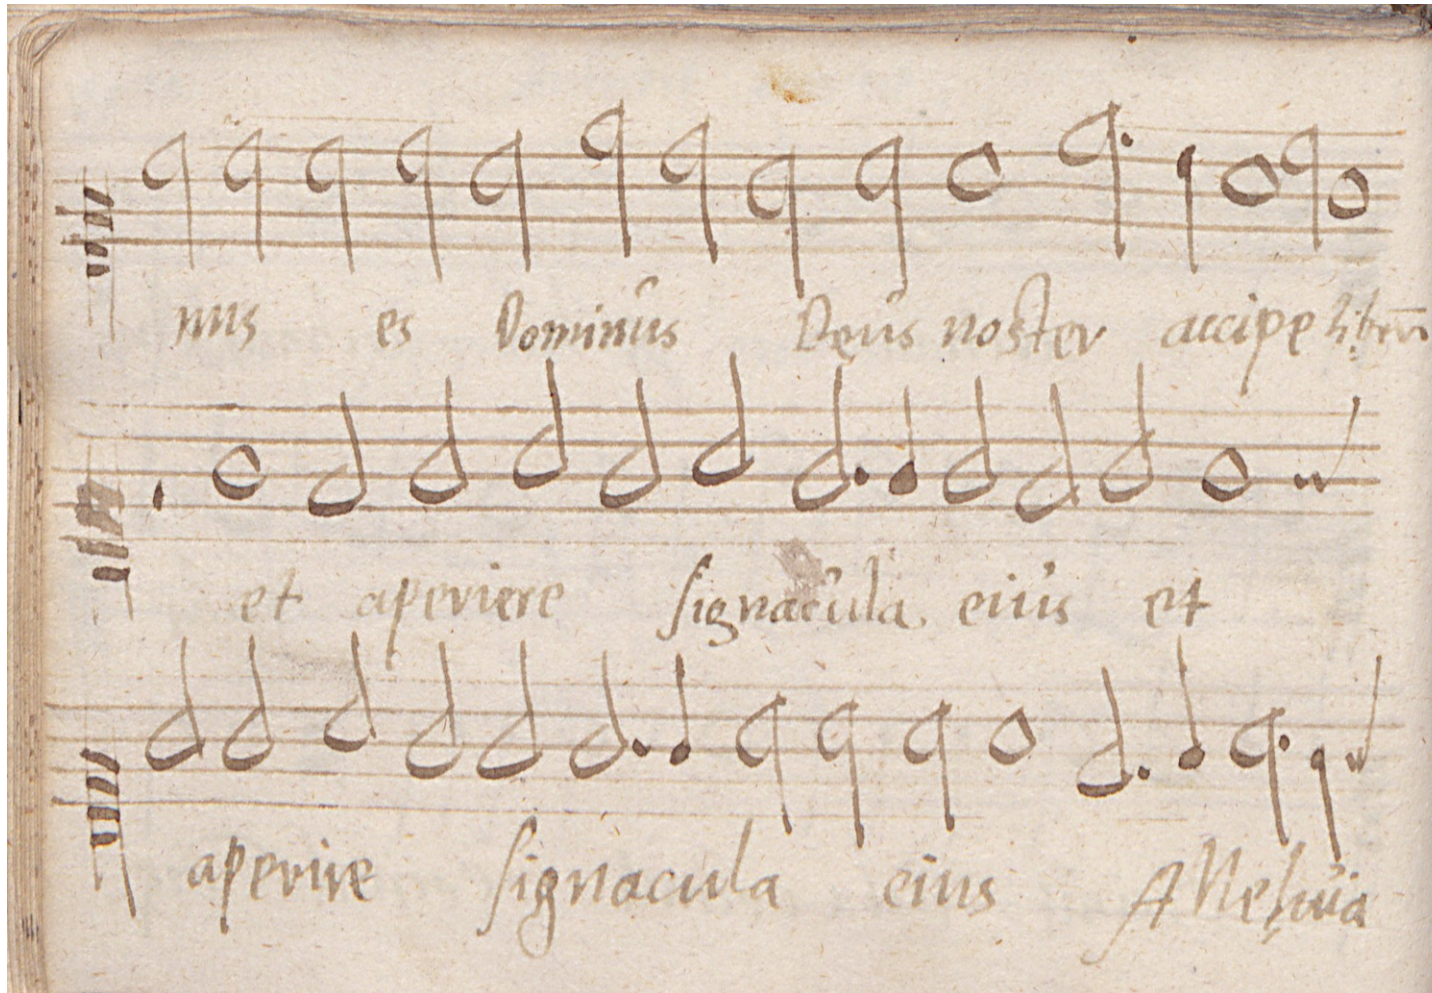 nus es Dominus Deus noster accipe librū
et aperiere signacula eius et
aperire signacula eius Alleluia